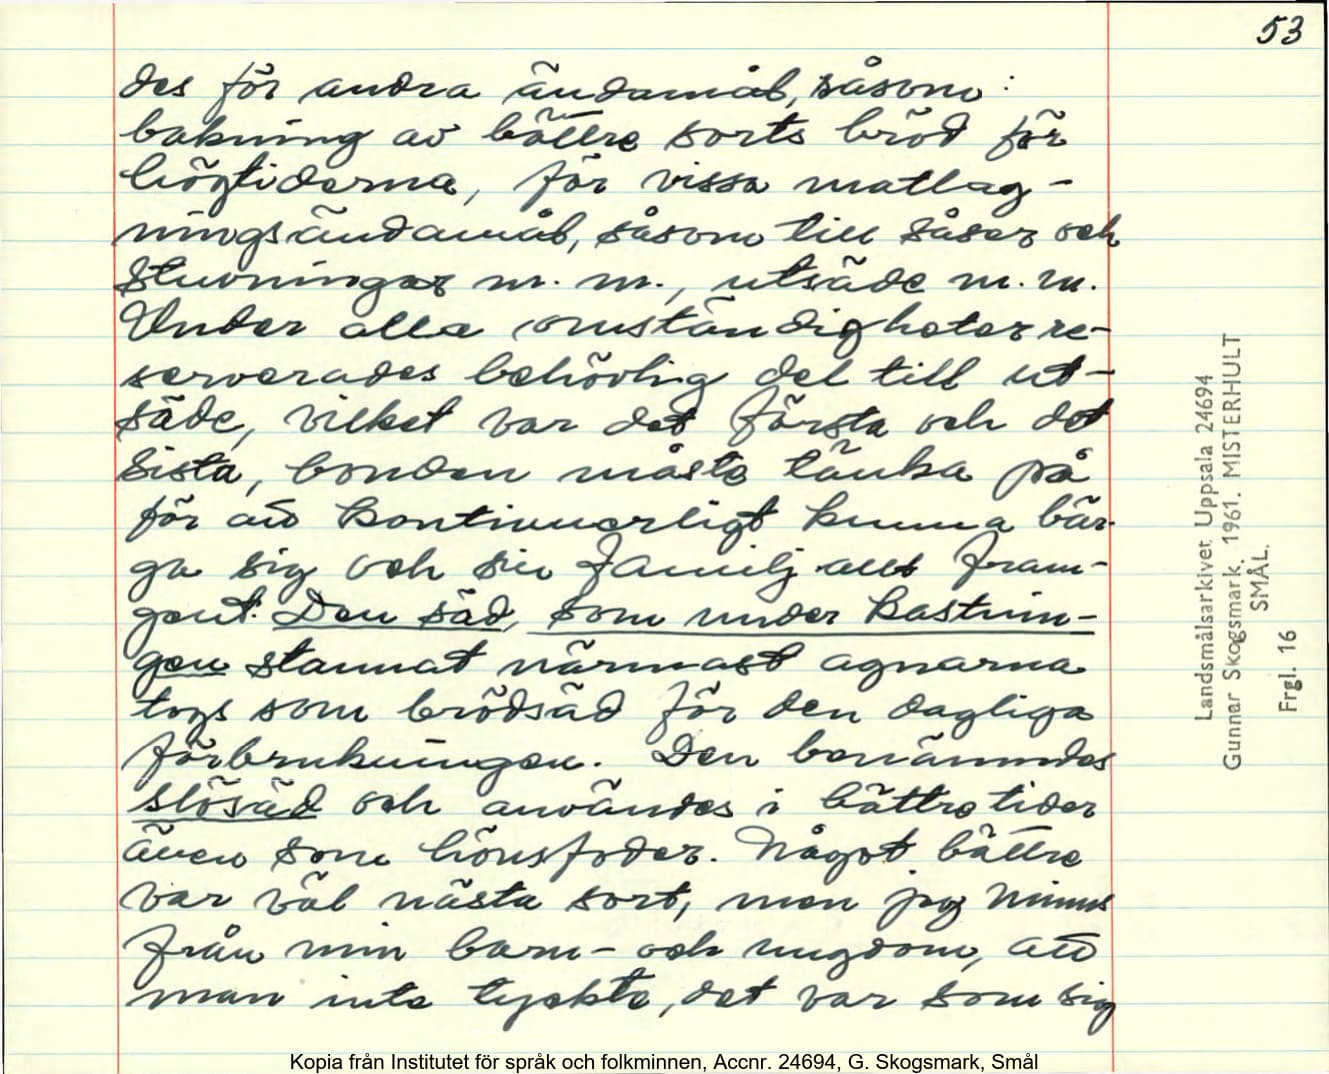 53
des för andra ändamål, såsom:
bakning av bättre sorts bröd för
högtiderna, för vissa matlag-
ningsändamål, såsom till såser och
stuvningar m. m., utsäde m. m.
Under alla omständigheter re-
serverades behövlig del till ut-
säde, vilket var det första och det
sista, bonden måste tänka på
för att kontinuerligt kunna bär-
ga sig och sin familj allt fram-
gent. Den säd, som under kastnin-
gen stannat närmast agnarna
togs som brödsäd för den dagliga
förbrukningen. Den benämndes
slösäd och användes i bättre tider
även som hönsfoder. Något bättre
var väl nästa sort, men jag minns
från min barn- och ungdom, att
man inte tyckte, det var som sig
Landsmålsarkivet Uppsala 24694
Gunnar Skogsmark. 1961. MISTERHULT
SMÅL.
Frgl. 16
Kopia från Institutet för språk och folkminnen, Accnr. 24694, G. Skogsmark, Smål